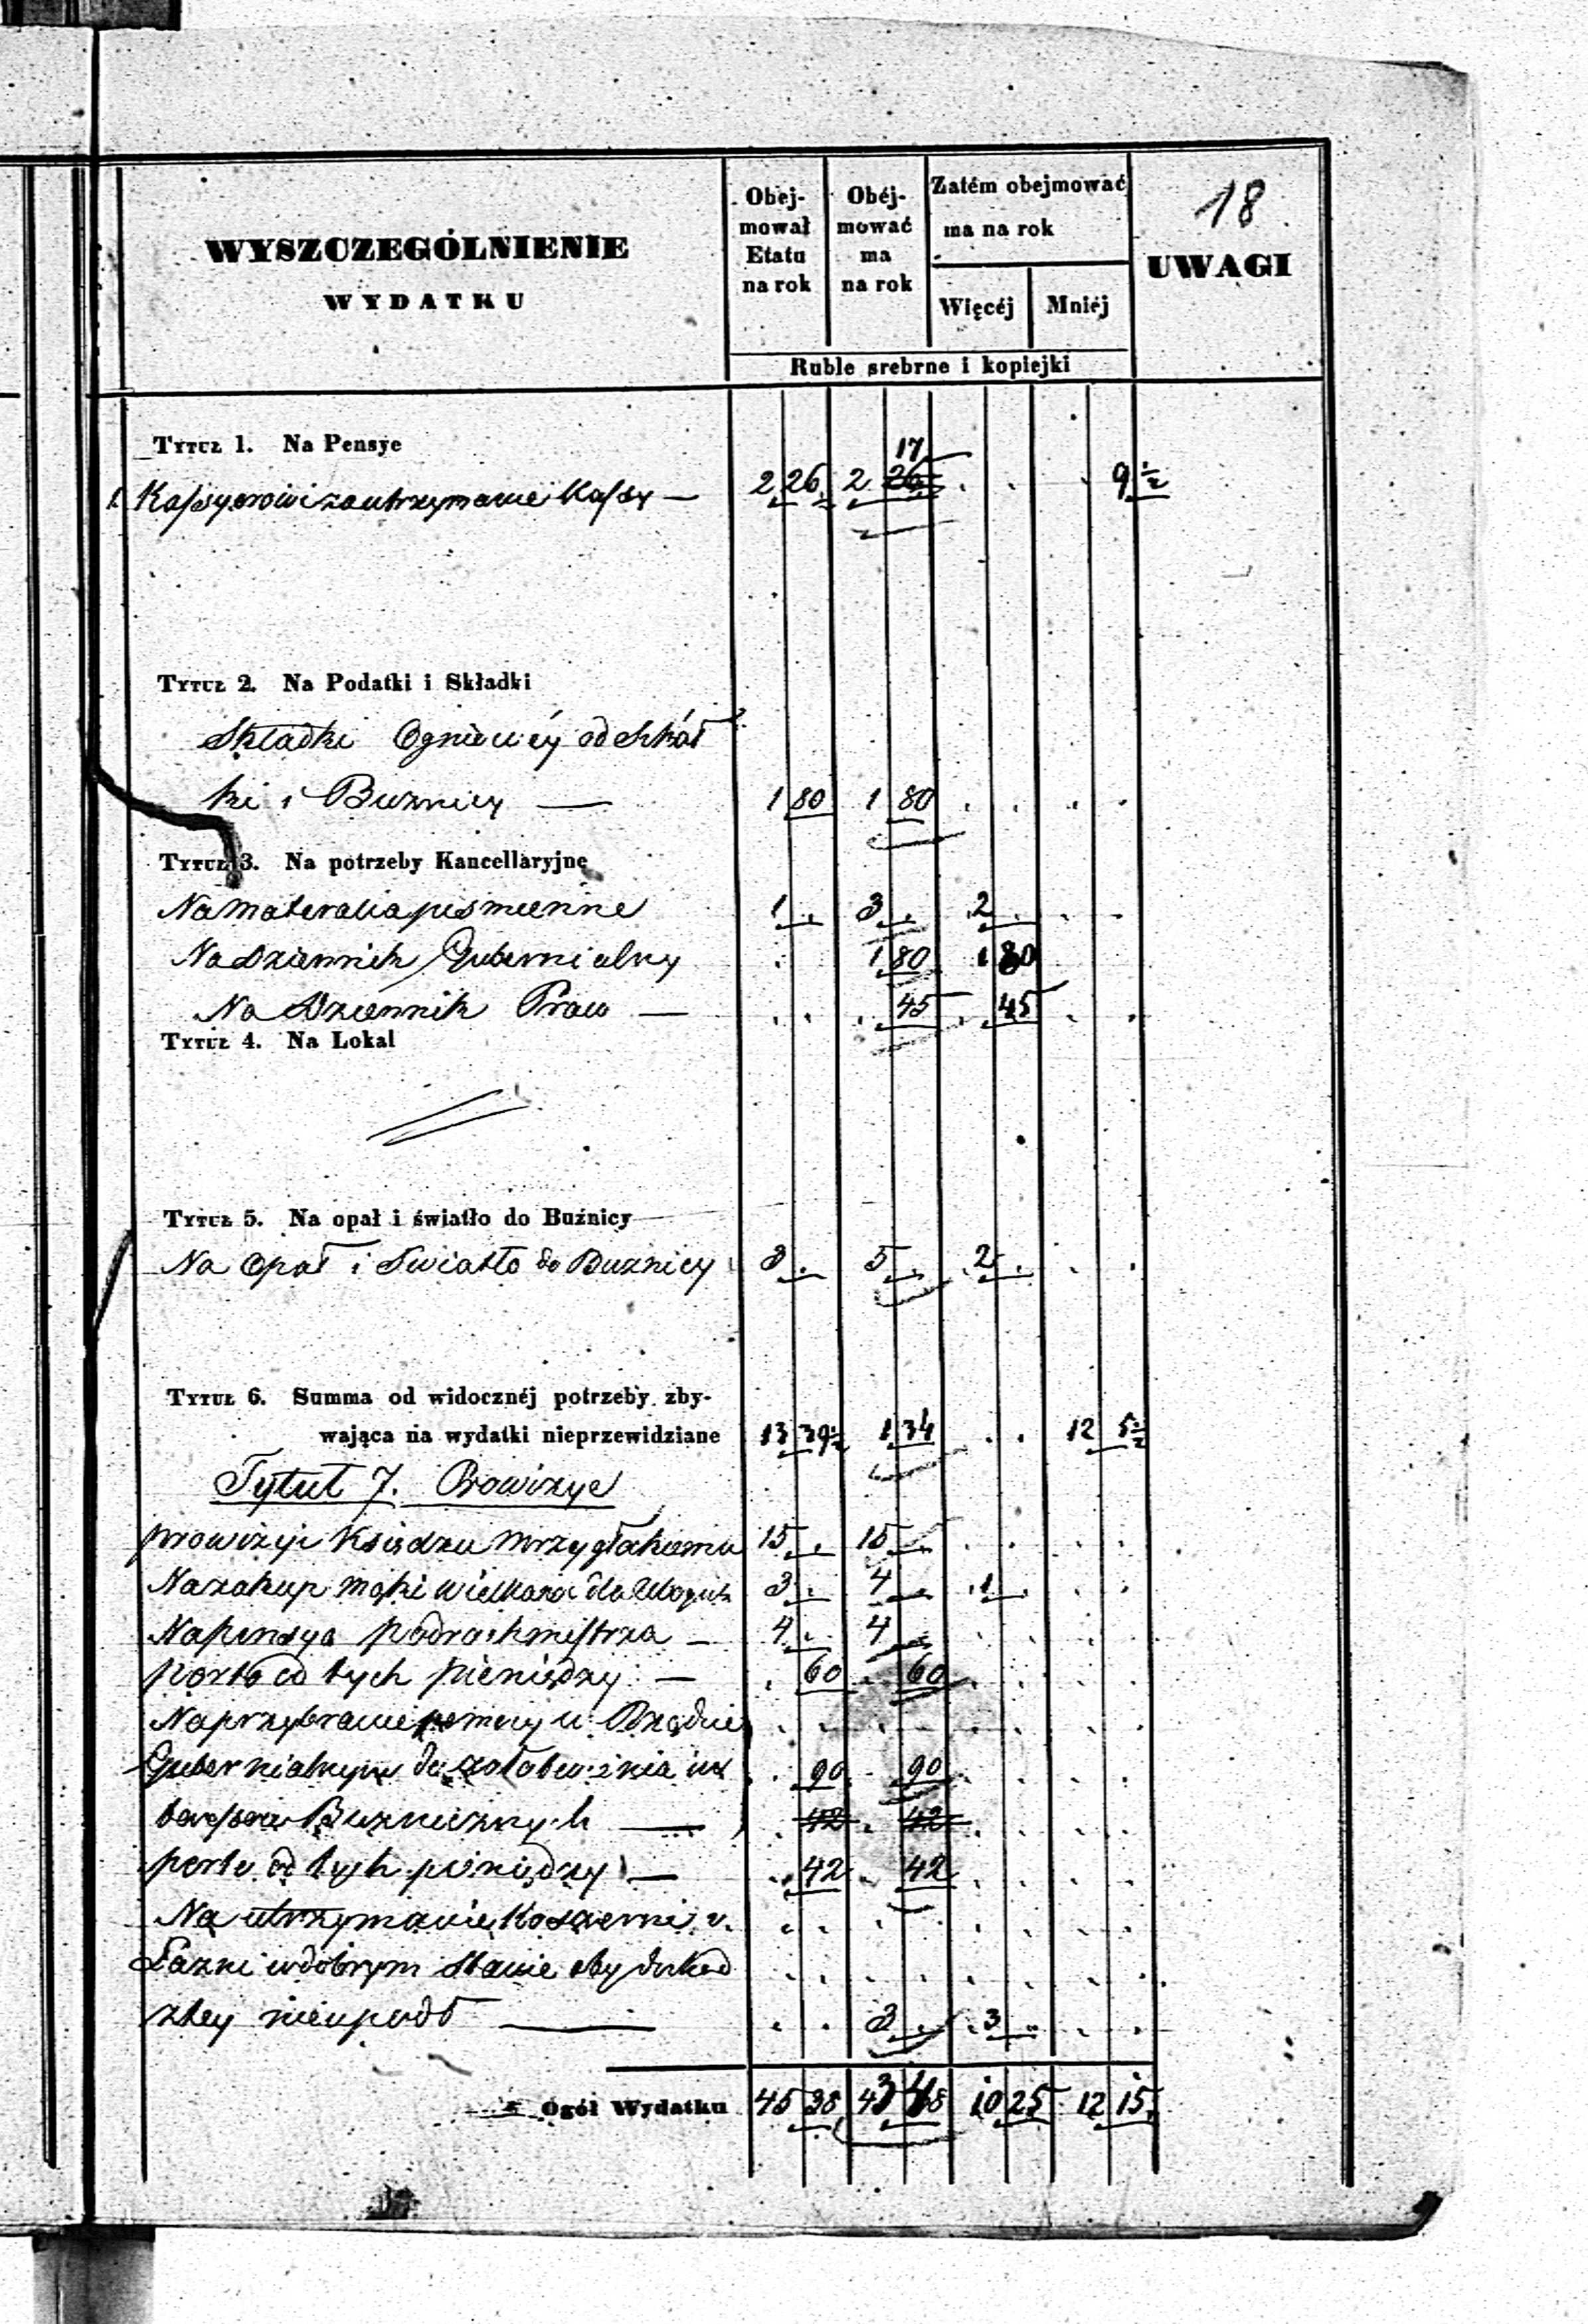 18
WYSZCZEGÓLNIENIE
WYDATKU
Obej-
mował
Etatu
na rok
Obéj-
mować
ma
na rok
Zatém obejmować
ma na rok
Więcéj
Mniéj
UWAGI
Ruble srebrne i kopiejki
Tytuł 1. Na Pensye
17
1. Kassyerowi za utrzymanie Kassy — 2 26 2 26 . . . 9 ½
Tytuł 2. Na Podatki i Składki
Składki Ogniowéy od Szkół
ki i Buznicy — 1 80 1 80 . . . .
Tytuł 3. Na potrzeby Kancellaryjne
Na materalia pismienne 1 . 3 . . 2 . . .
Na Dziennik Gubernialny . 1 80 1 80
Na Dziennik Praw — . . . 45 . 45 . .
Tytuł 4. Na Lokal
Tytuł 5. Na opał i światło do Buźnicy
Na Opał i Swiatło do Buznicy 3 . 5 . . 2 . . .
Tytuł 6. Summa od widocznéj potrzeby zby-
wająca na wydatki nieprzewidziane 13 39½ 1 34 . . 12 5½
Tytuł 7. Prowizye
prowizyi Księdzu 15 . 15 . . . .
Na zakup mąki wielkanoc dla 3 . 4 . . 1 . . .
Na pensya podrachmistrza — 4 . 4 . . . .
porto od tych pieniędzy — . 60 . 60 . . . .
Na przybranie pomocy w Rządzie . . . . . . . .
Gubernialnym do załatwienia in . 90 . 90 . . . .
teressow Buznicznych — . 42 . 42 . . . .
porto od tych pieniędzy — . 42 . 42 . . . .
Na utrzymanie Koszerni i . . . . . . . .
Łazni w dobrym stanie aby dochod . . . . . . . .
z tey nieupadł — . . 3 . . 3 . . .
Ogół Wydatku 45 38 43 48 10 25 12 15